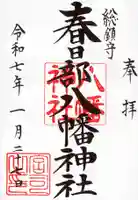 奉拝
総鎮守
春日部八幡神社
令和七年一月二十七日